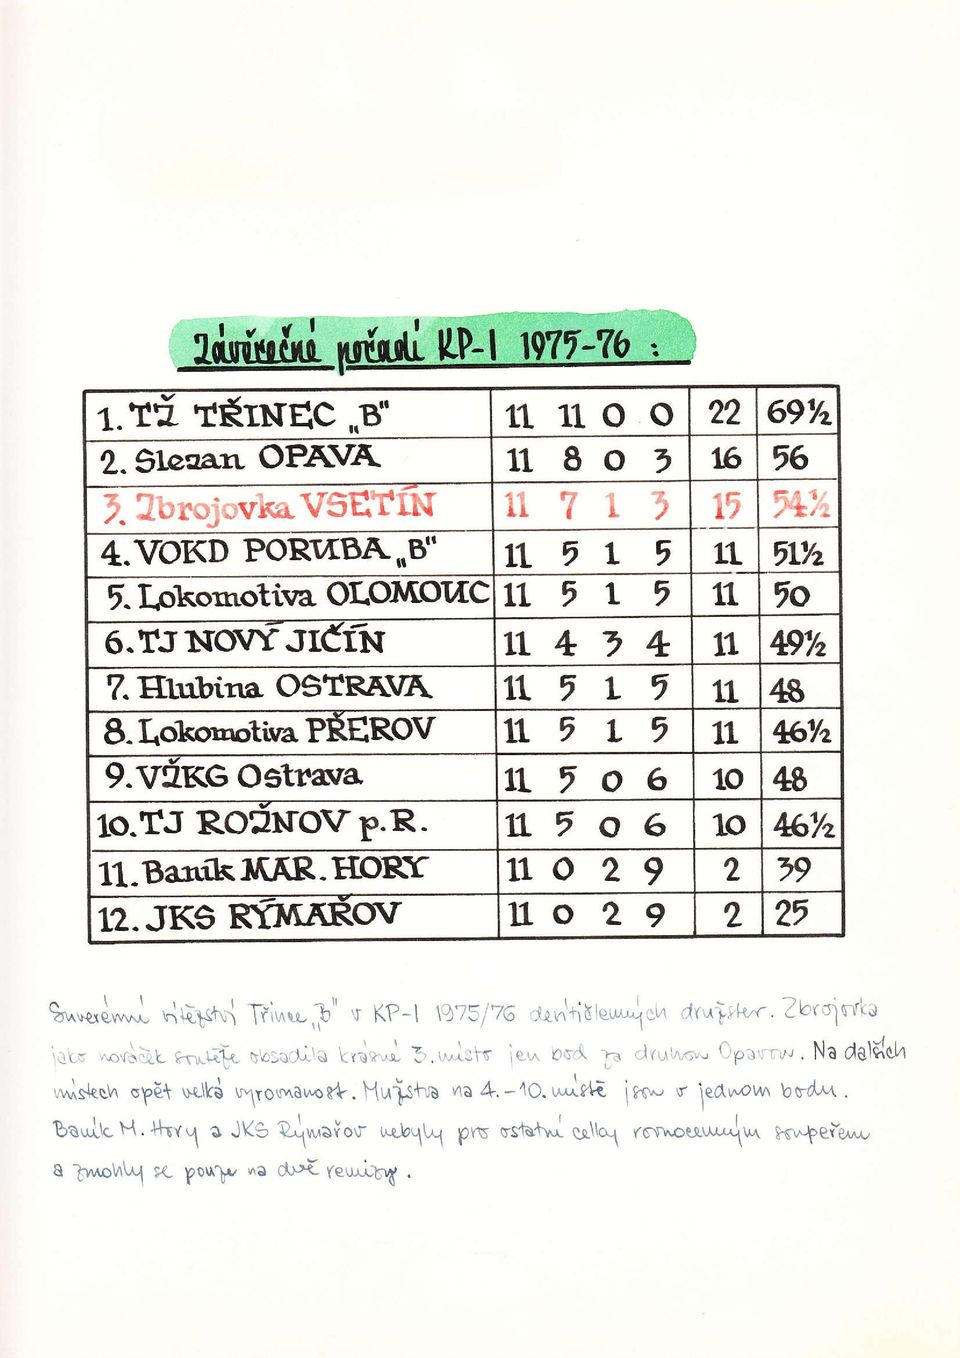 Závěrečné pořadí KP-I 1975-76 :
1. TŽ TŘINEC „B" 11 11 0 0 22 69½
2. Slezan OPAVA 11 8 0 3 16 56
3. Zbrojovka VSETÍN 11 7 1 3 15 54½
4. VOKD PORUBA „B" 11 5 1 5 11 51½
5. Lokomotiva OLOMOUC 11 5 1 5 11 50
6. TJ NOVÝ JIČÍN 11 4 3 4 11 49½
7. Hlubina OSTRAVA 11 5 1 5 11 48
8. Lokomotiva PŘEROV 11 5 1 5 11 46½
9. VŽKG Ostrava 11 5 0 6 10 48
10. TJ ROŽNOV p.R. 11 5 0 6 10 46½
11. Baník MAR. HORY 11 0 2 9 2 39
12. JKS RÝMAŘOV 11 0 2 9 2 25
Suverénní vítězství Třince „B" v KP-I 1975/76 devítičlenných družstev. Zbrojovka
jako nováček soutěže obsadila krásné 3. místo jen bod za druhou Opavou. Na dalších
místech opět velká vyrovnanost. Mužstva na 4.-10. místě jsou v jednom bodu.
Baník M. Hory a JKS Rýmařov nebyly pro ostatní celky rovnocenným soupeřem
a zmohly se pouze na dvě remizy.